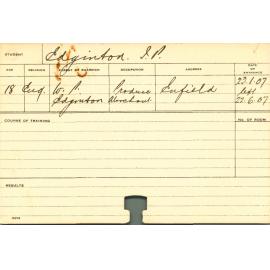 STUDENT Edginton. I.P.
AGE RELIGION PARENT OR GUARDIAN OCCUPATION ADDRESS DATE OF ENTRANCE
18 Eng. W. P. Produce Enfield 22.1.07
Edginton Merchant left
22.6.07
COURSE OF TRAINING No. OF ROOM
RESULTS